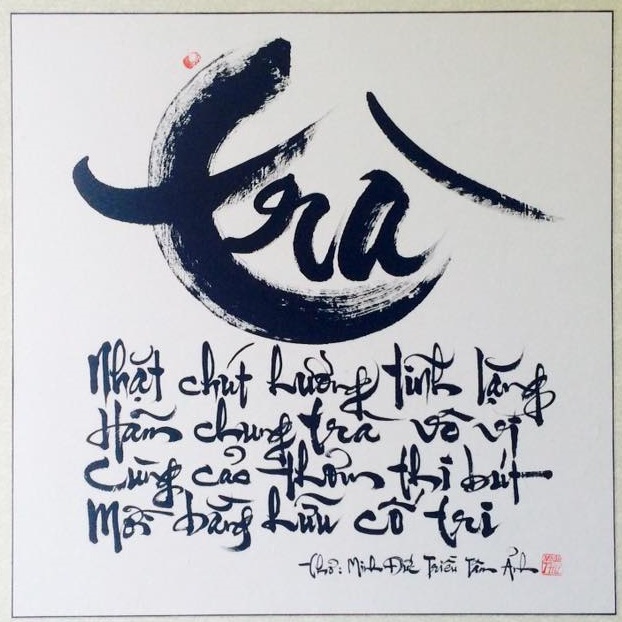 Trà
Nhặt chút hương tĩnh lặng
Hãm chung trà vô vị
Cùng cảo thơm thi bút
Mời bằng hữu cố tri
thơ: Minh Đức Triều Tâm Ảnh